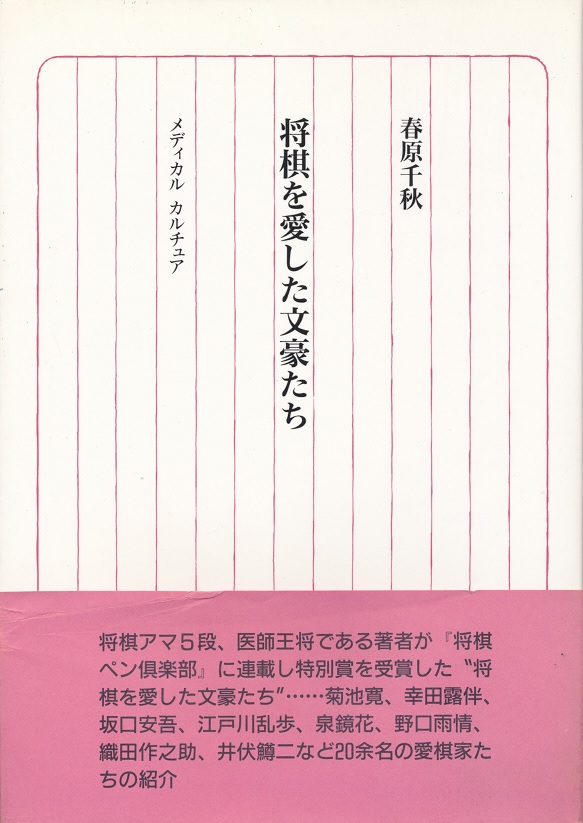 春原千秋
将棋を愛した文豪たち
メディカル カルチュア
将棋アマ5段、医師王将である著者が『将棋
ペン倶楽部』に連載し特別賞を受賞した〝将
棋を愛した文豪たち〟……菊池寛、幸田露伴、
坂口安吾、江戸川乱歩、泉鏡花、野口雨情、
織田作之助、井伏鱒二など20余名の愛棋家た
ちの紹介